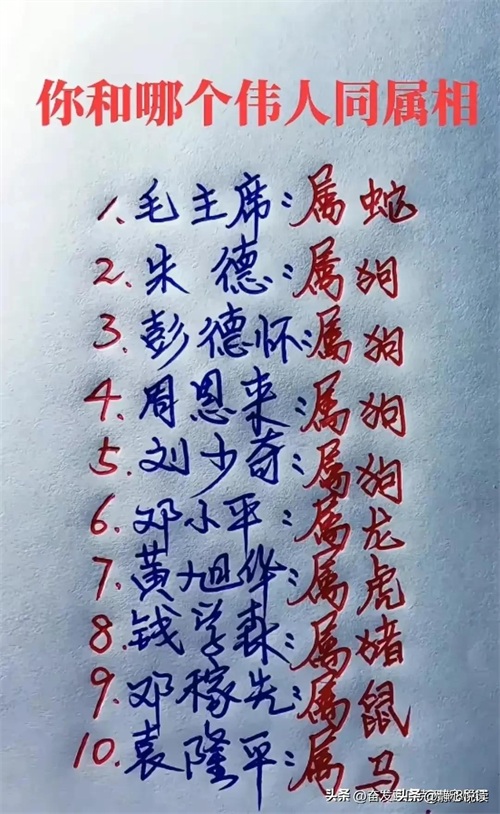 你和哪个伟人同属相
1.毛主席:属蛇
2.朱德:属狗
3.彭德怀:属狗
4.周恩来:属狗
5.刘少奇:属狗
6.邓小平:属龙
7.黄旭华:属虎
8.钱学森:属猪
9.邓稼先:属鼠
10.袁隆平:属马